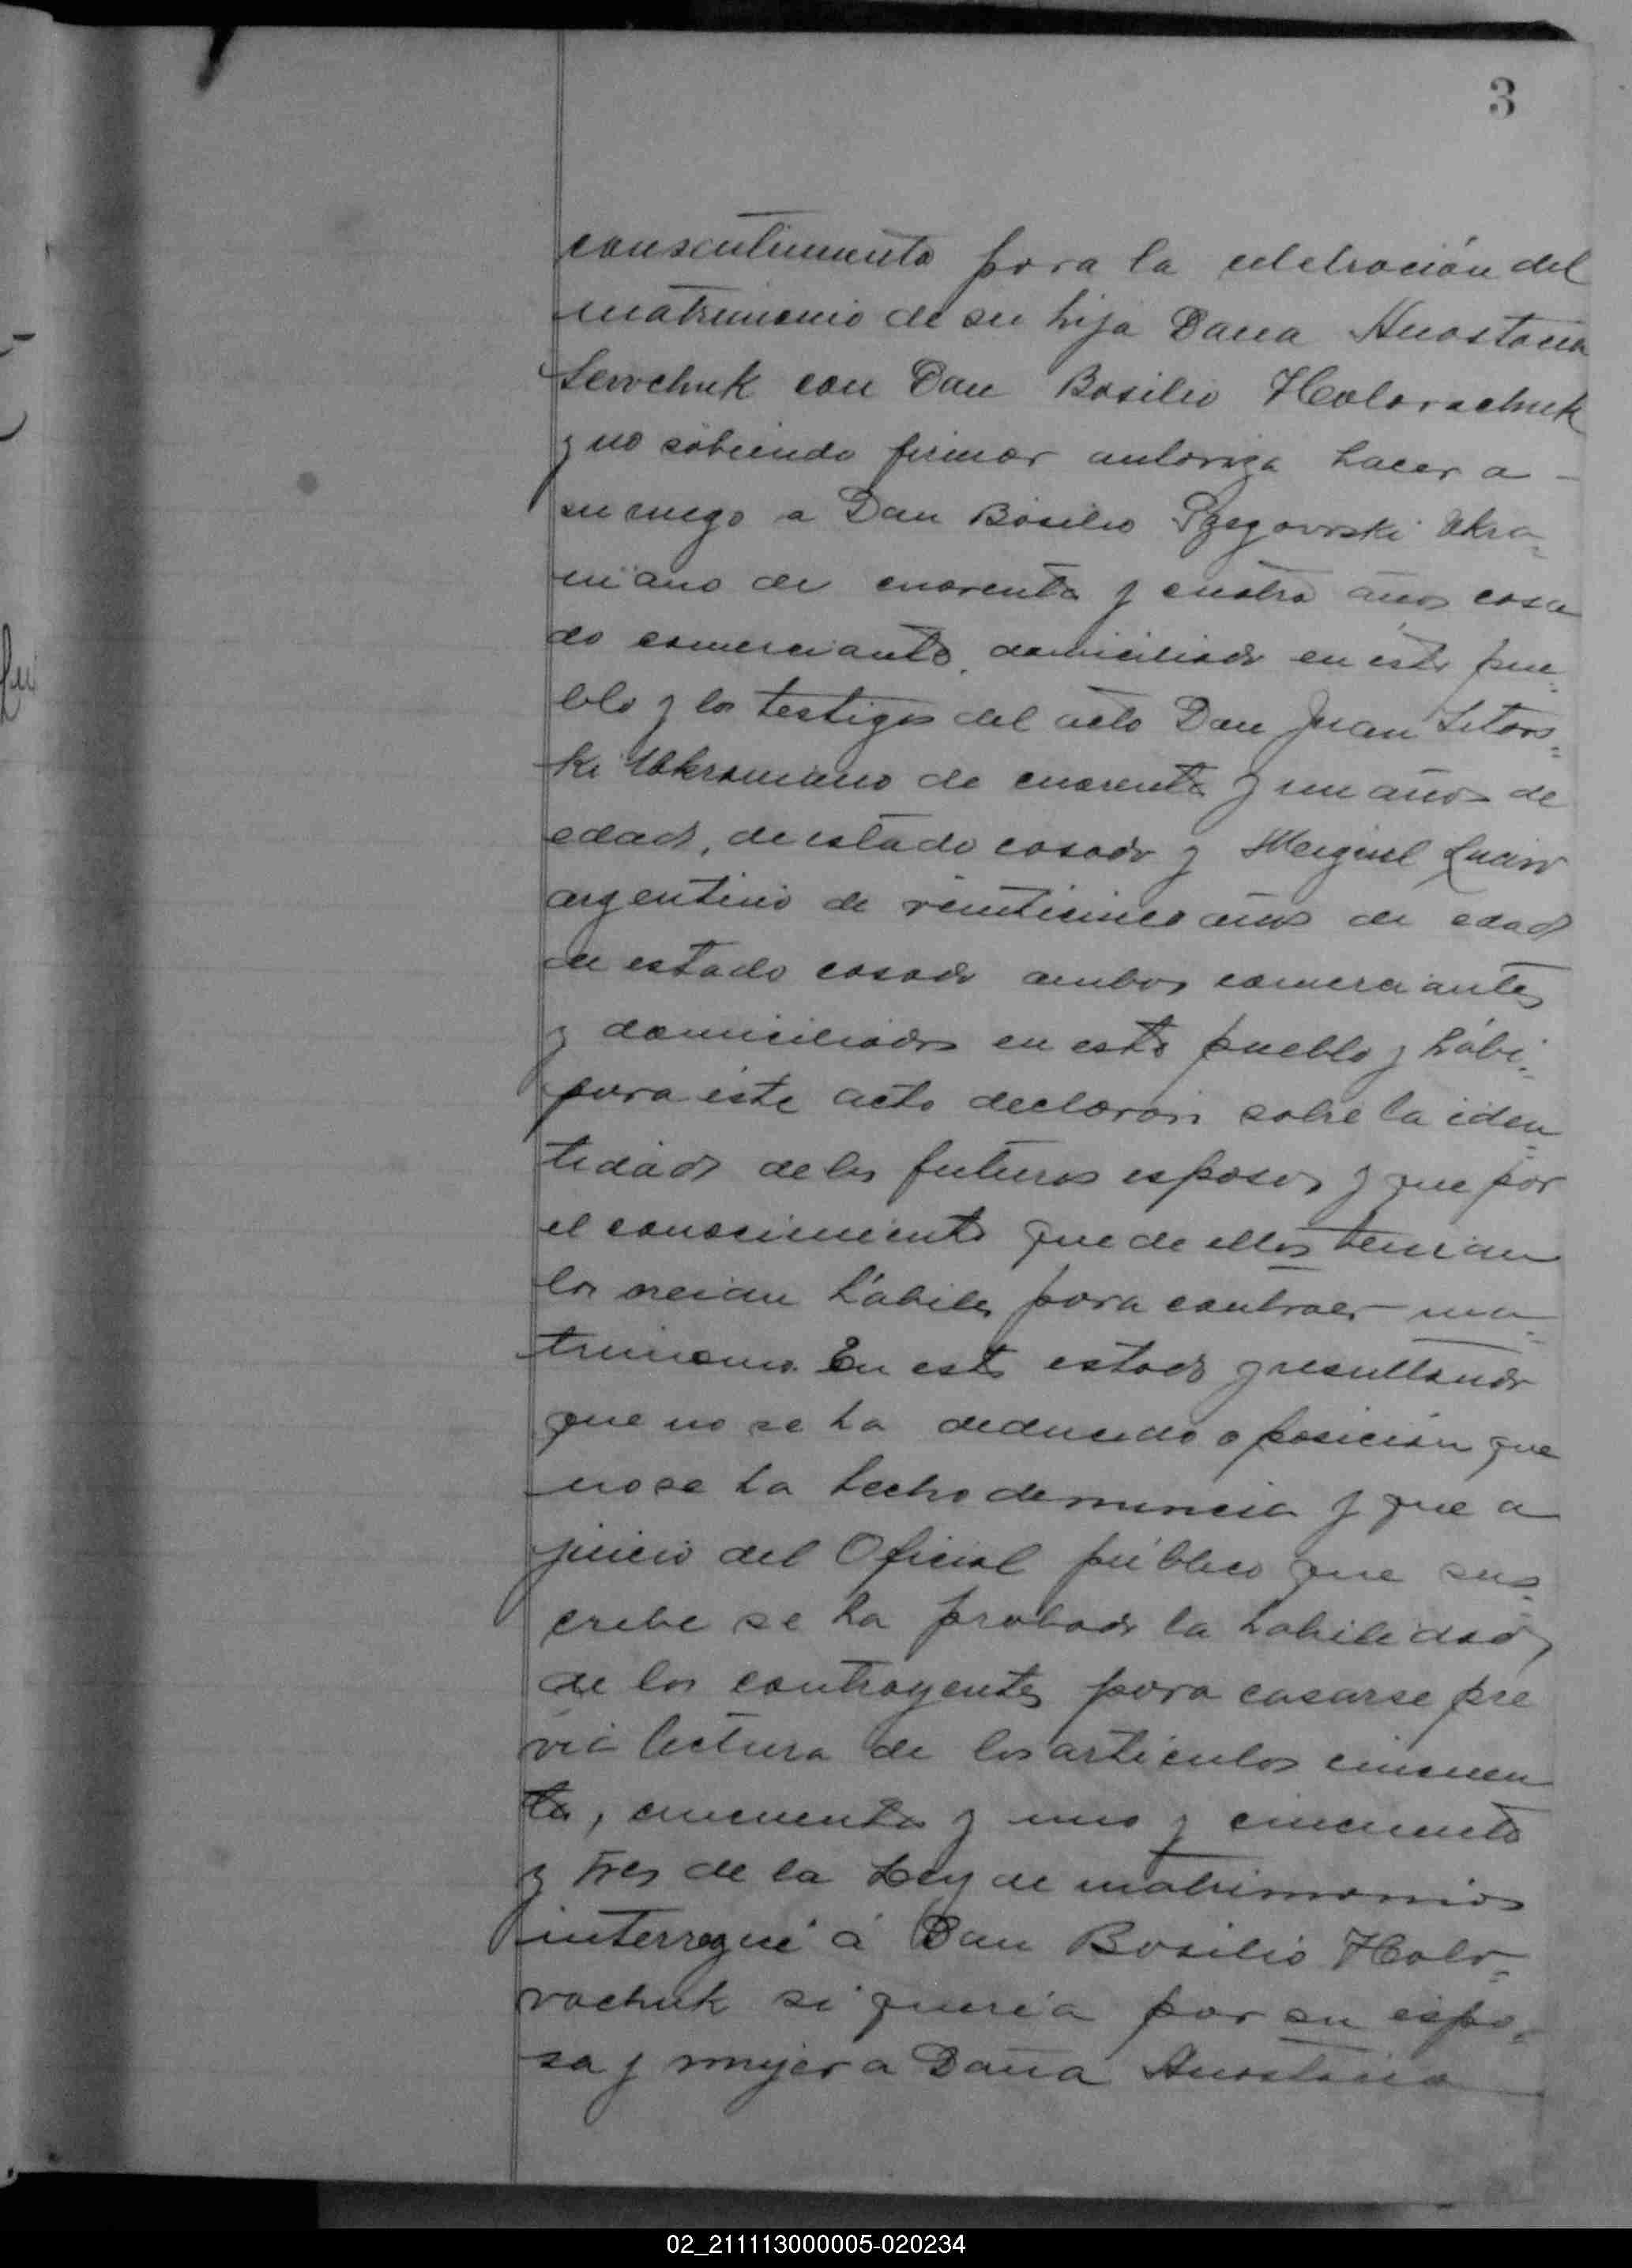 3
consentimiento para la celebración del
matrimonio de su hija Doña Anastacia
Sewchuk con Don Basilio Holovachuk
y no sabiendo firmar autoriza hacer a
su ruego a Don Basilio Szegovski Ukra-
niano de cuarenta y cuatro años casa
do comerciante, domiciliado en este pue-
blo y los testigos del acto Don Juan Sitars-
ki Ukraniano de cuarenta y un años de
edad, de estado casado y Miguel
argentino de veinticinco años de edad
de estado casado ambos comerciantes
y domiciliados en este pueblo y hábi-
para éste acto declaron sobre la iden-
tidad de los futuros esposos y que por
el conocimiento que de ellos tenian
los creian hábiles para contraer ma-
trimonio. En este estado y resultando
que no se ha deducido oposición que
no se ha hecho denuncia y que a
juicio del Oficial público que sus-
cribe se ha probado la habilidad
de los contrayentes para casarse pre
via lectura de los articulos cincuen
ta, cincuenta y uno y cincuenta
y tres de la Ley de matrimonio
interrogué á Don Basilio Holo-
vachuk si queria por su espo-
sa y mujer a Doña Anastacia
02_211113000005-020234